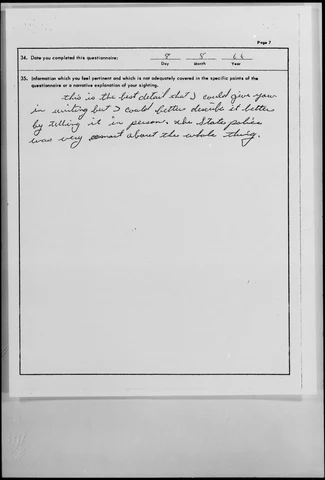 Page 7
34. Date you completed this questionnaire: 8 8 66
Day Month Year
35. Information which you feel pertinent and which is not adequately covered in the specific points of the
questionnaire or a narrative explanation of your sighting.
this is the best detail that I could give you
in writing but I could better describe it better
by telling it in person. The State police
was very smart about the whole thing.